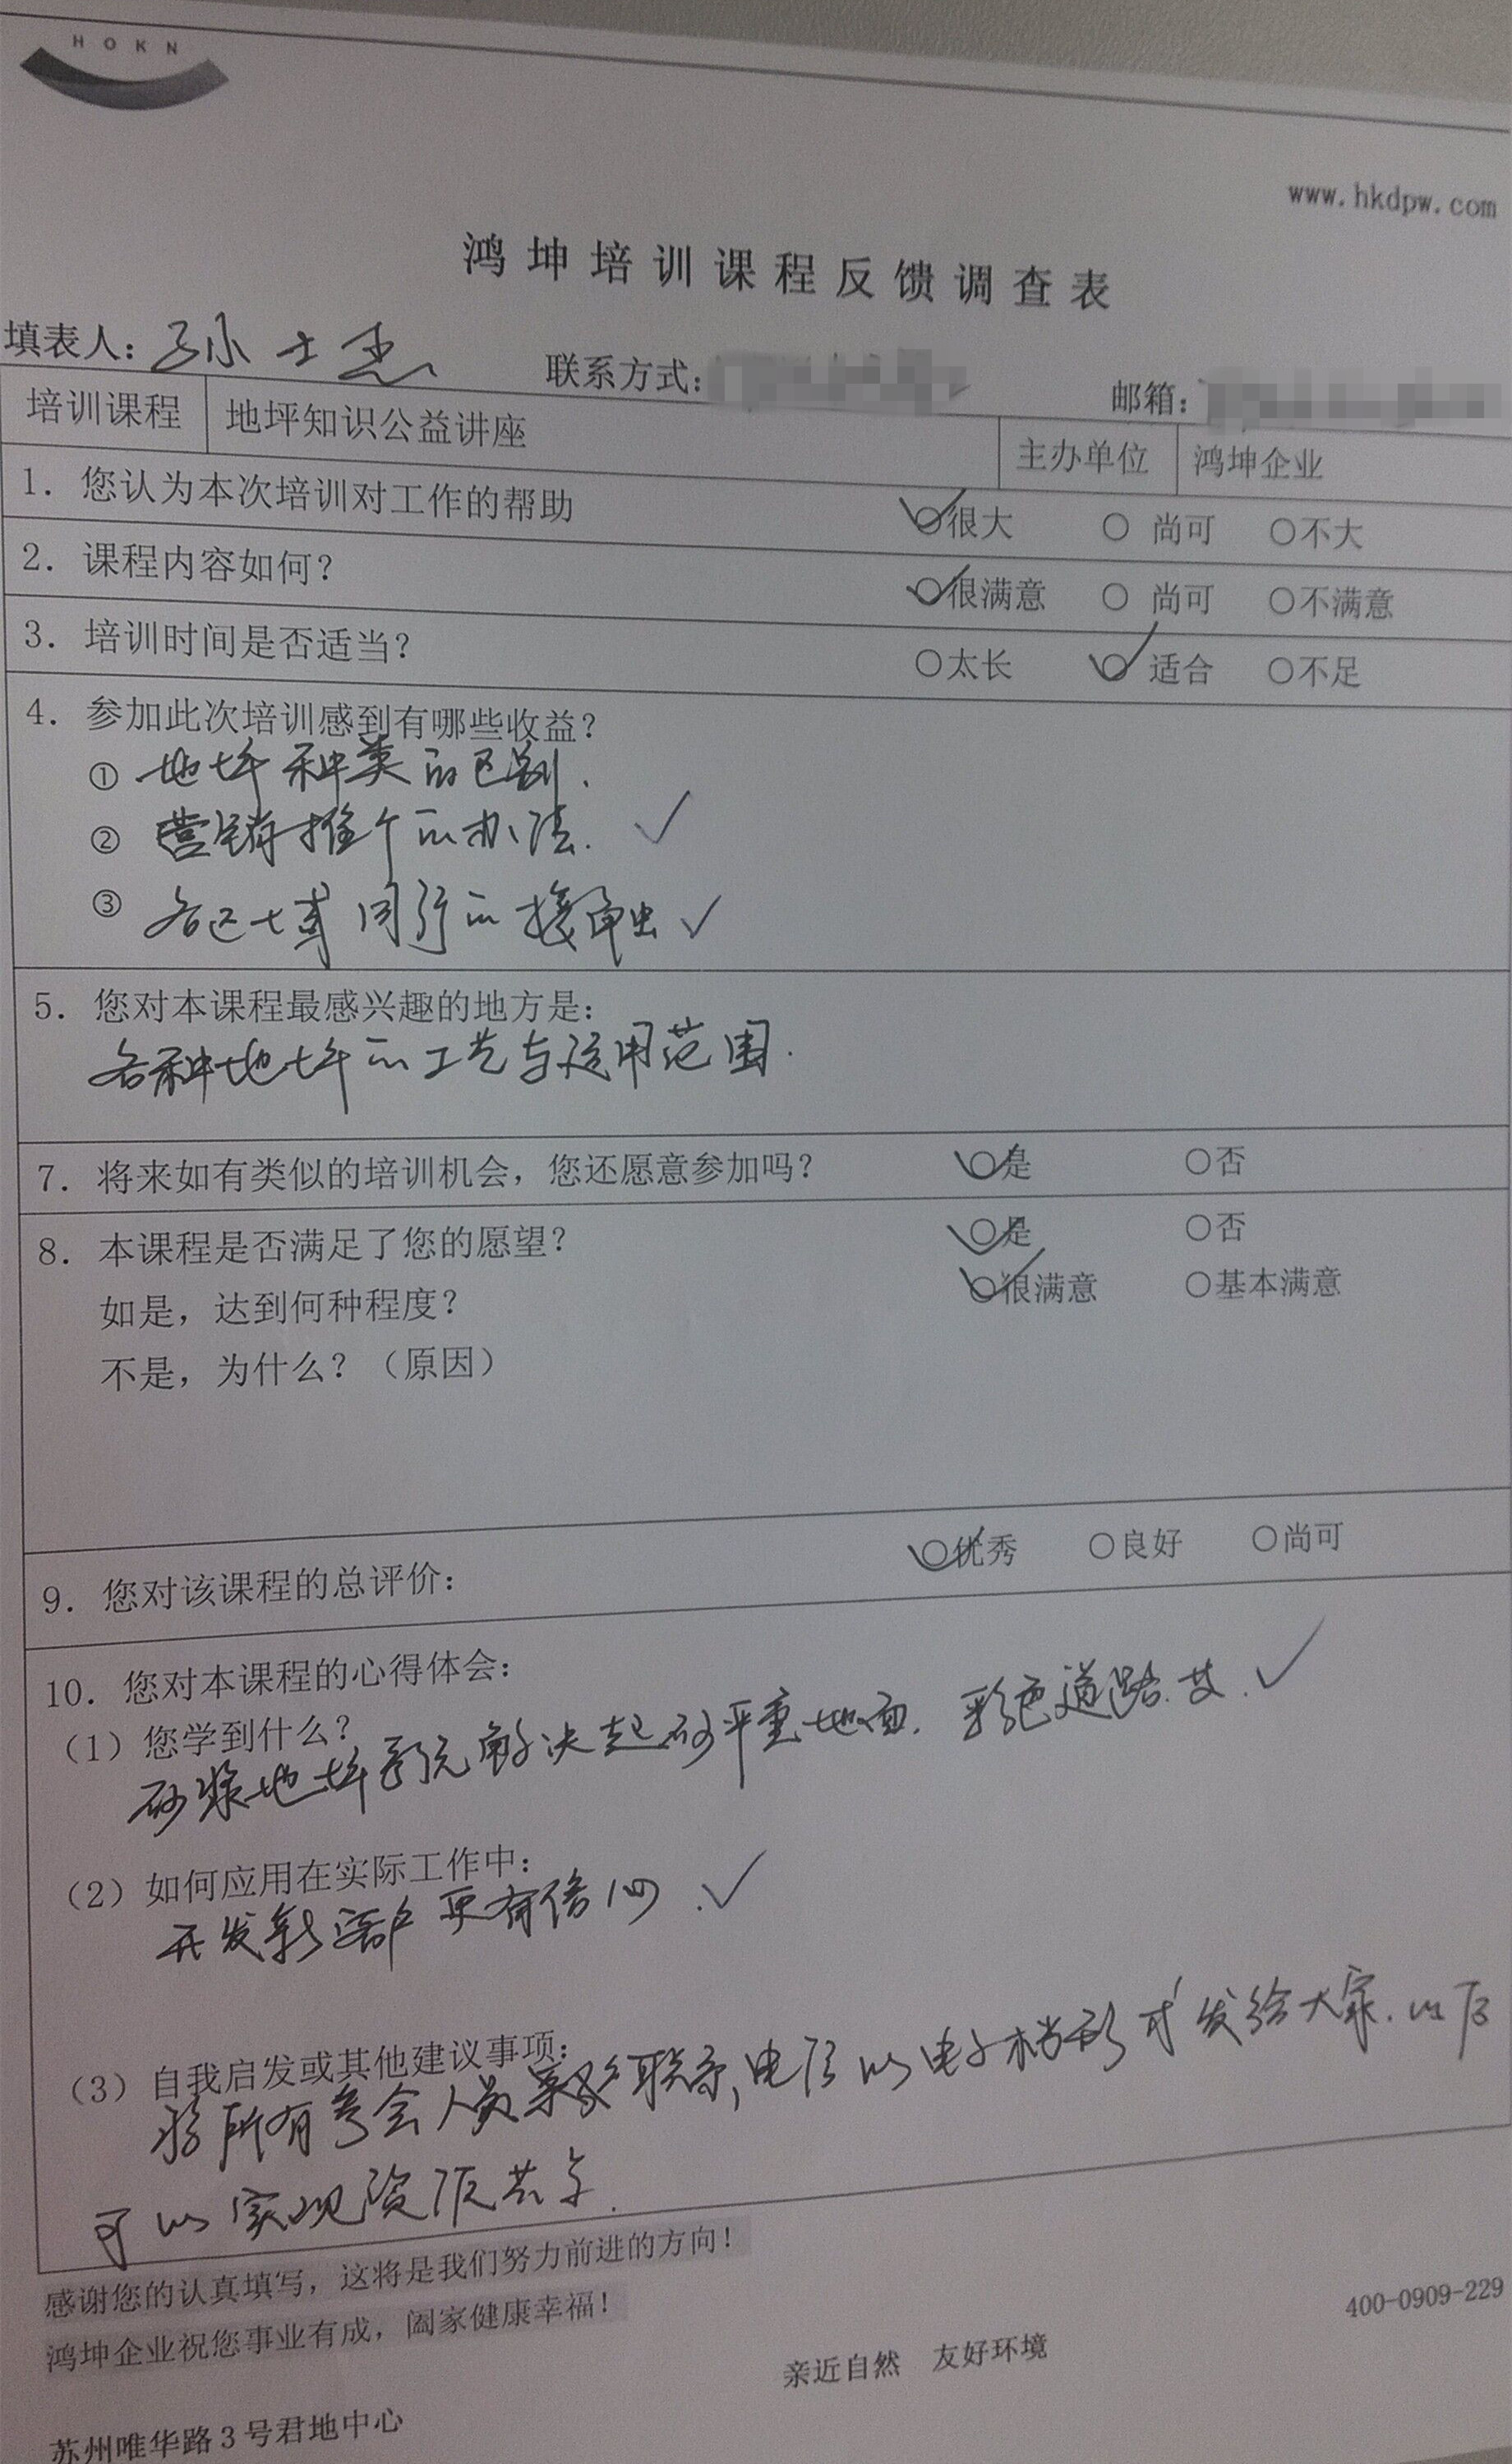 HOKN
www.hkdpw.com
鸿坤培训课程反馈调查表
填表人：孙士杰 联系方式： 邮箱：
培训课程 地坪知识公益讲座 主办单位 鸿坤企业
1．您认为本次培训对工作的帮助 ○很大 ○ 尚可 ○不大
2．课程内容如何？ ○很满意 ○ 尚可 ○不满意
3．培训时间是否适当？ ○太长 ○ 适合 ○不足
4．参加此次培训感到有哪些收益？
① 地坪种类的区别．
② 营销推个的办法． ✓
③ 各区域同行的接触 ✓
5．您对本课程最感兴趣的地方是：
各种地坪的工艺与适用范围．
7．将来如有类似的培训机会，您还愿意参加吗？ ○是 ○否
8．本课程是否满足了您的愿望？ ○是 ○否
如是，达到何种程度？ ○很满意 ○基本满意
不是，为什么？（原因）
9．您对该课程的总评价： ○优秀 ○良好 ○尚可
10．您对本课程的心得体会：
（1）您学到什么？
砂浆地坪系统解决起砂严重地面．彩色道路． ✓
（2）如何应用在实际工作中：
开发新客户更有信心．✓
（3）自我启发或其他建议事项：
将所有参会人员联系电话以电子档形才发给大家．以后
可以实现资源共享．
感谢您的认真填写，这将是我们努力前进的方向！
鸿坤企业祝您事业有成，阖家健康幸福！
400-0909-229
亲近自然 友好环境
苏州唯华路3号君地中心